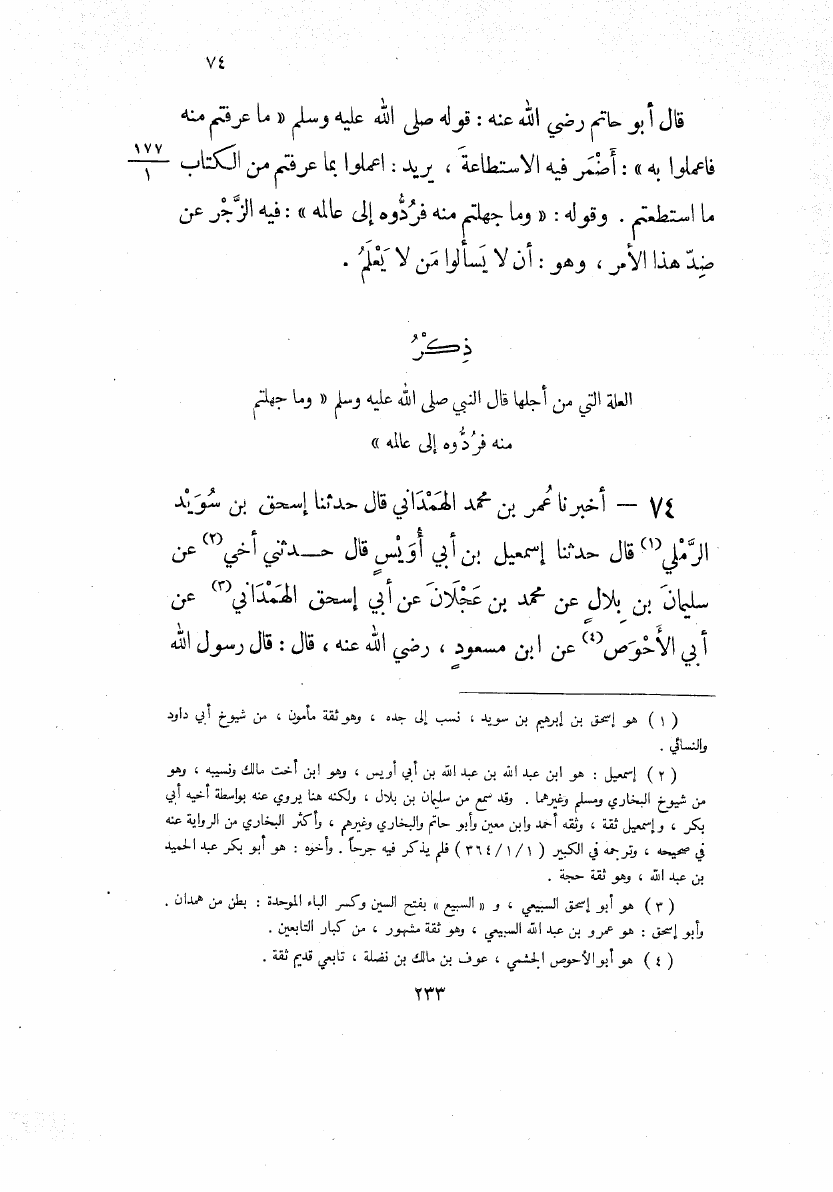 ٧٤
قال أبو حاتم رضي الله عنه : قوله صلى الله عليه وسلم « ما عرفتم منه
فاعملوا به » : أَضْمَر فيه الاستطاعةَ ، يريد : اعملوا بما عرفتم من الكتاب
١٧٧
١
ما استطعتم . وقوله : « وما جهلتم منه فرُدُّوه إلى عالمه » : فيه الزَّجْر عن
ضِدّ هذا الأمر ، وهو : أن لا يَسألوا مَن لا يَعْلَمُ .
ذِكْرُ
العلة التي من أجلها قال النبي صلى الله عليه وسلم « وما جهلتم
منه فرُدُّوه إلى عالمه »
٧٤ – أخبرنا عُمر بن محمد الهَمْدَاني قال حدثنا إسحق بن سُوَيْد
الرَّمْلي (١) قال حدثنا إسمعيل بن أبي أُوَيْسٍ قال حـدثني أخي (٢) عن
سليمانَ بن بِلالٍ عن محمد بن عَجْلَانَ عن أبي إسحق الهَمْدَاني (٣) عن
أبي الأَحْوَص (٤) عن ابن مسعودٍ ، رضي الله عنه ، قال : قال رسول الله
( ١ ) هو إسحق بن إبرهيم بن سويد ، نسب إلى جده ، وهو ثقة مأمون ، من شيوخ أبي داود
والنسائي .
( ٢ ) إسمعيل : هو ابن عبد الله بن عبد الله بن أبي أويس ، وهو ابن أخت مالك ونسيبه ، وهو
من شيوخ البخاري ومسلم وغيرهما . وقد سمع من سليمان بن بلال ، ولكنه هنا يروي عنه بواسطة أخيه أبي
بكر ، وإسمعيل ثقة ، وثقه أحمد وابن معين وأبو حاتم والبخاري وغيرهم ، وأكثر البخاري من الرواية عنه
في صحيحه ، وترجمه في الكبير ( ٣٦٤/١/١ ) فلم يذكر فيه جرحاً . وأخوه : هو أبو بكر عبد الحميد
بن عبد الله ، وهو ثقة حجة .
( ٣ ) هو أبو إسحق السبيعي ، و « السبيع » بفتح السين وكسر الباء الموحدة : بطن من همدان .
وأبو إسحق : هو عمرو بن عبد الله السبيعي ، وهو ثقة مشهور ، من كبار التابعين .
( ٤ ) هو أبو الأحوص الجشمي ، عوف بن مالك بن نضلة ، تابعي قديم ثقة .
٢٣٣